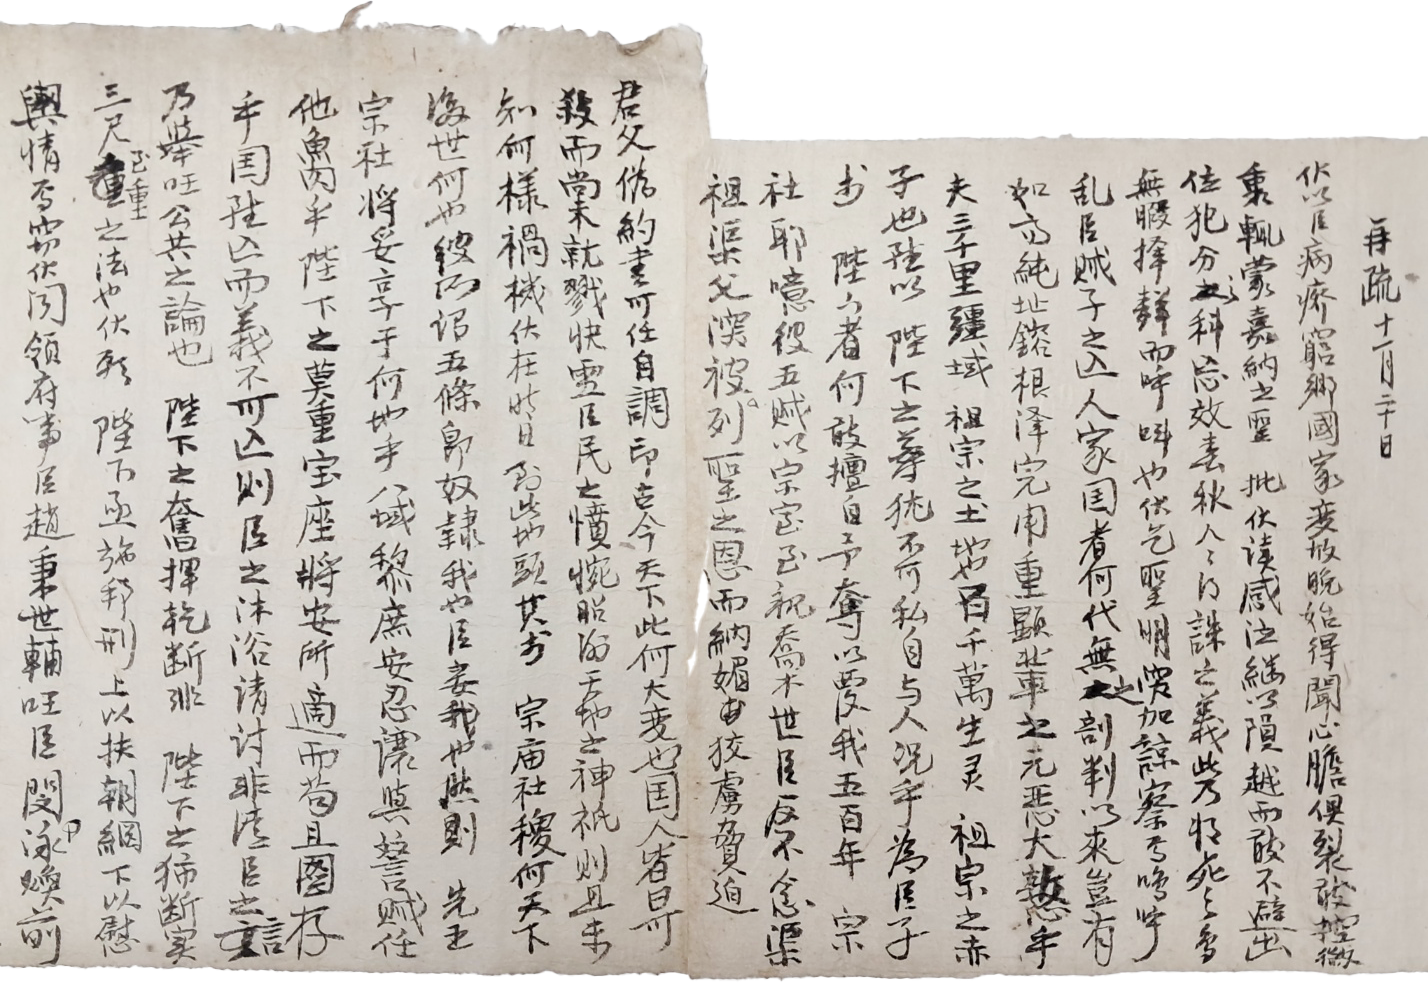 再疏 十一月二十日
伏以臣病瘁窮鄉國家變故晩始得聞心膽俱裂敢控微
衷輒蒙嘉納之聖 批伏讀感泣繼以隕越而敢不避出
位犯分之科忘效春秋人人得誅之義此乃將死之鳥
無暇擇聲而呼 也伏乞聖明更加諒察焉嗚呼
乱臣賊子之亡人家国者何代無之剖判以來豈有
如 純址鎔根泽完用重顯 之元悪大憝乎
夫三千里疆域 祖宗之土地也百千萬生灵 祖宗之赤
子也雖以 陛下之尊猶不可私自与人況乎為臣子
於 陛下者何敢擅自予奪以覆我五百年 宗
社耶噫彼五賊以宗室至親喬木世臣反不念渠
祖渠父深被列聖之恩而納媚由狡虜脅迫
君父偽約書可任自調印古今天下此何大变也囯人皆曰可
殺而尚未就戮快雪臣民之憤惋昭洩天地之神祇則且未
知何樣禍機伏在昨日到此地頭其於 宗庙社稷何天下
後世何也彼所謂五條卽奴隷我也臣妾我也然則 先王
宗社將妥享于何地乎八域黎庶安忍讓與讐賊任
他魚肉乎 陛下之莫重宝座將安所適而苟且圖存
乎国雖亡而義不可亡則臣之沐浴請討非徒臣之言
乃擧旺公共之論也 陛下之奮揮乾断非 陛下之独断実
三尺至重之法也伏願 陛下亟施邦刑上以扶朝綱下以慰
輿情焉 伏闻領府事臣趙秉世輔旺臣閔泳煥前